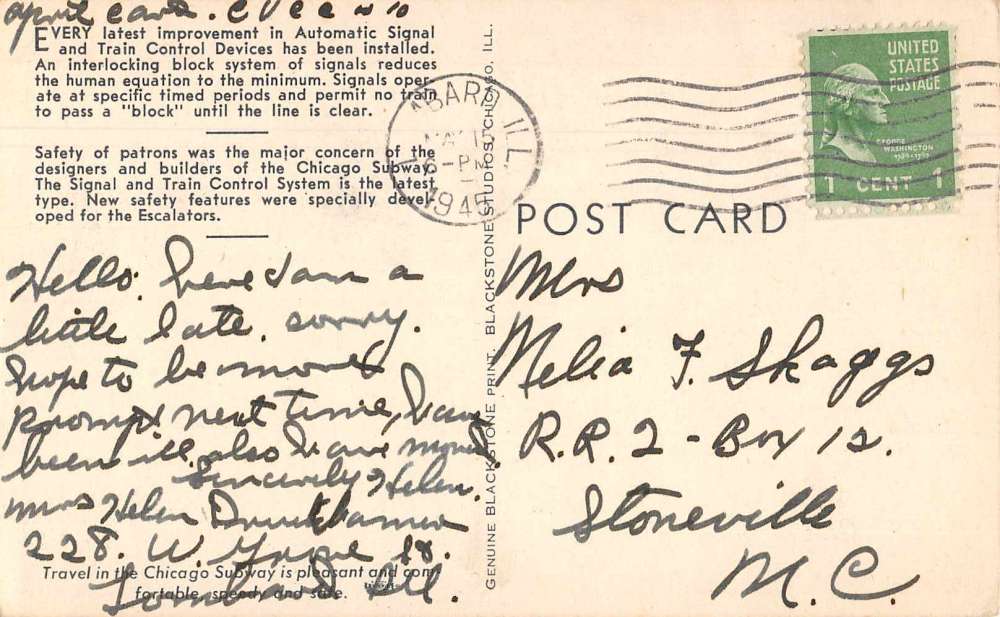 April Card. C V C C # 10
EVERY latest improvement in Automatic Signal
and Train Control Devices has been installed.
An interlocking block system of signals reduces
the human equation to the minimum. Signals oper-
ate at specific timed periods and permit no train
to pass a "block" until the line is clear.
Safety of patrons was the major concern of the
designers and builders of the Chicago Subway.
The Signal and Train Control System is the latest
type. New safety features were specially devel-
oped for the Escalators.
Hello. here I am a
little late. sorry.
hope to be more
prompt next time, have
been ill. also have moved.
Sincerely Helen.
Mrs Helen
228. W. St.
Lombard Ill.
Travel in the Chicago Subway is pleasant and com-
fortable, speedy and safe.
GENUINE BLACKSTONE PRINT. BLACKSTONE STUDIOS, CHICAGO, ILL.
LOMBARD, ILL.
MAY 1
6-PM
1945
UNITED
STATES
POSTAGE
GEORGE
WASHINGTON
1789-1797
1 CENT 1
POST CARD
Mrs
Melia F. Skaggs
R.R. 2 - Box 12.
Stoneville
N.C.